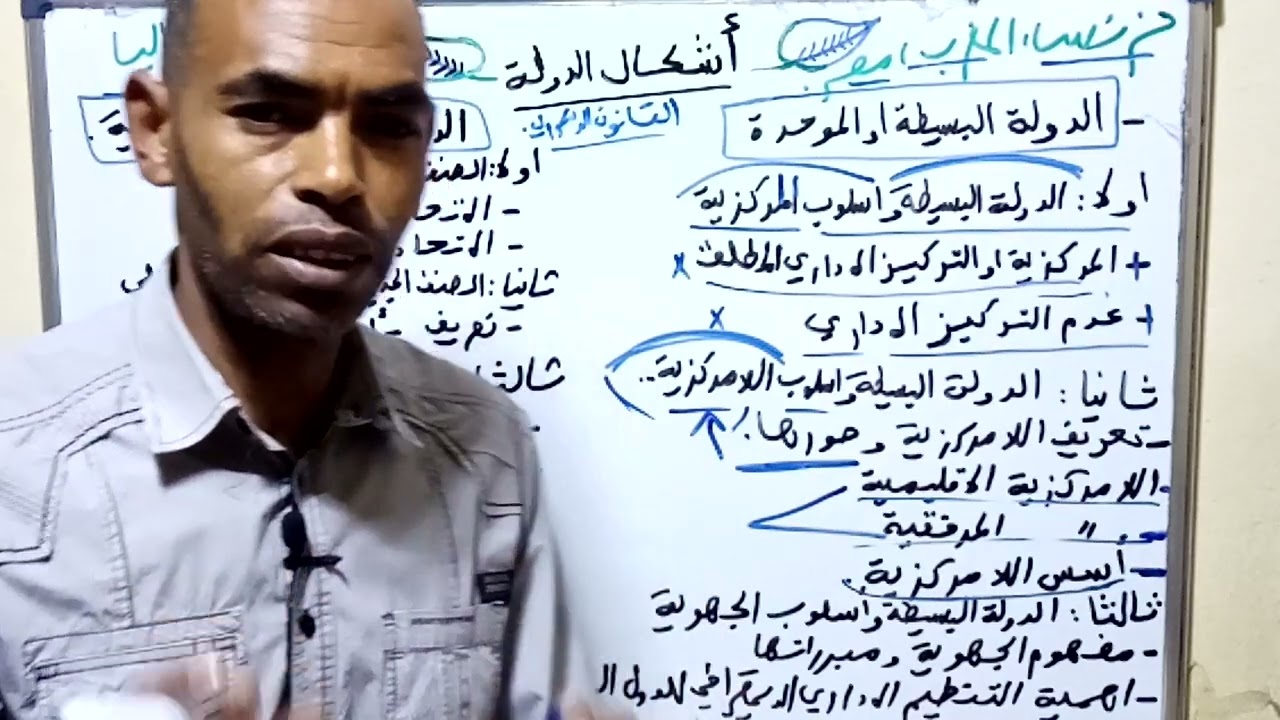 أشكال الدولة
القانون الدستوري.
فرنسا، المغرب، مصر
- الدولة البسيطة او الموحدة
اولا: الدولة البسيطة واسلوب المركزية
+ المركزية او التركيز الاداري المطلق x
+ عدم التركيز الاداري x
ثانيا: الدولة البسيطة واسلوب اللامركزية..
- تعريف اللامركزية وصورها:
- اللامركزية الاقليمية
- " المرفقية
- أسس اللامركزية.
ثالثا: الدولة البسيطة واسلوب الجهوية
- مفهوم الجهوية ومبرراتها
- اهمية التنظيم الاداري الديمقراطي للدول ال
اولا: الصنف
ثانيا: الصنف
- تعريف
ثالثا